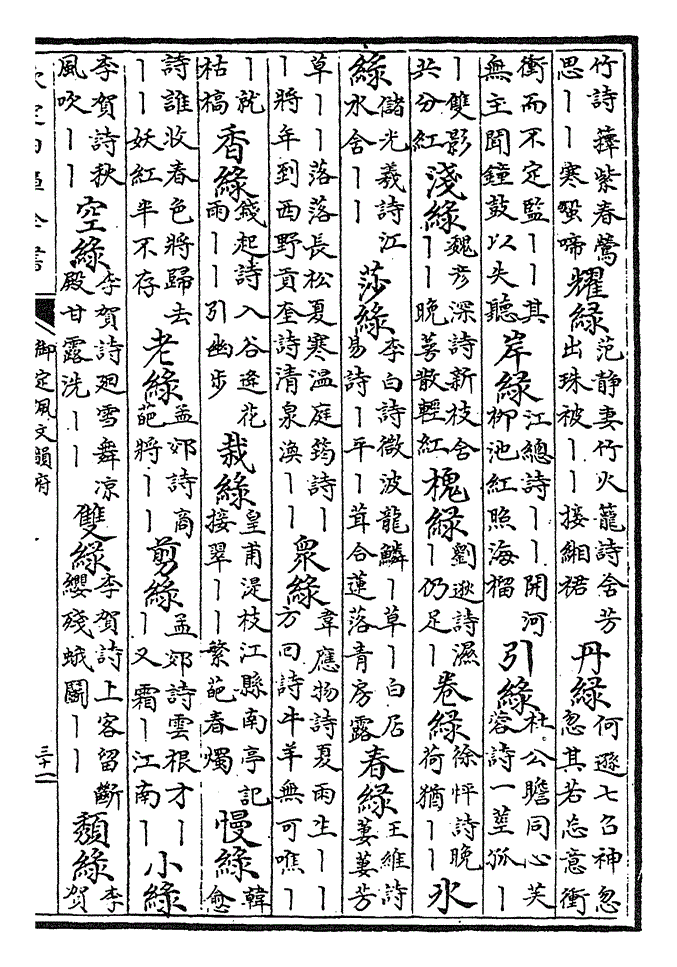 竹詩籜紫春鶯思丨丨寒蛩啼 耀綠 范静妻竹火籠詩含芳出珠被丨丨接緗裙 丹綠 何遜七召神忽忽其若忘意衝
衝而不定監丨丨其無主聞鐘鼓以失聽 岸綠 江總詩丨丨開河柳池紅照海榴 引綠 杜公瞻同心芙蓉詩一莖孤丨
丨雙影共分紅 淺綠 魏彦深詩新枝含丨丨晚萼散輕紅 槐綠 劉逖詩濕丨仍足丨 卷綠 徐怦詩晚荷猶丨丨 水
綠 儲光羲詩江水含丨丨 莎綠 李白詩微波龍鱗丨草丨白居易詩丨平丨茸合蓮落青房露 春綠 王維詩萋萋芳
草丨丨落落長松夏寒温庭筠詩丨丨將年到西野貢奎詩清泉渙丨丨 衆綠 韋應物詩夏雨生丨丨方回詩牛羊無可噍丨
丨就枯槁 香綠 錢起詩入谷逄花雨丨丨引幽步 栽綠 皇甫湜枝江縣南亭記接翠丨丨繁葩春燭 慢綠 韓愈
詩誰收春色將歸去丨丨妖紅半不存 老綠 孟郊詩商葩將丨丨 剪綠 孟郊詩雲根才丨丨又霜丨江南丨 小綠
李賀詩秋風吹丨丨 空綠 李賀詩廻雪舞凉殿甘露洗丨丨 雙綠 李賀詩上客留斷纓殘蛾鬭丨丨 頹綠 李賀
欽定四庫全書 御定佩文韻府